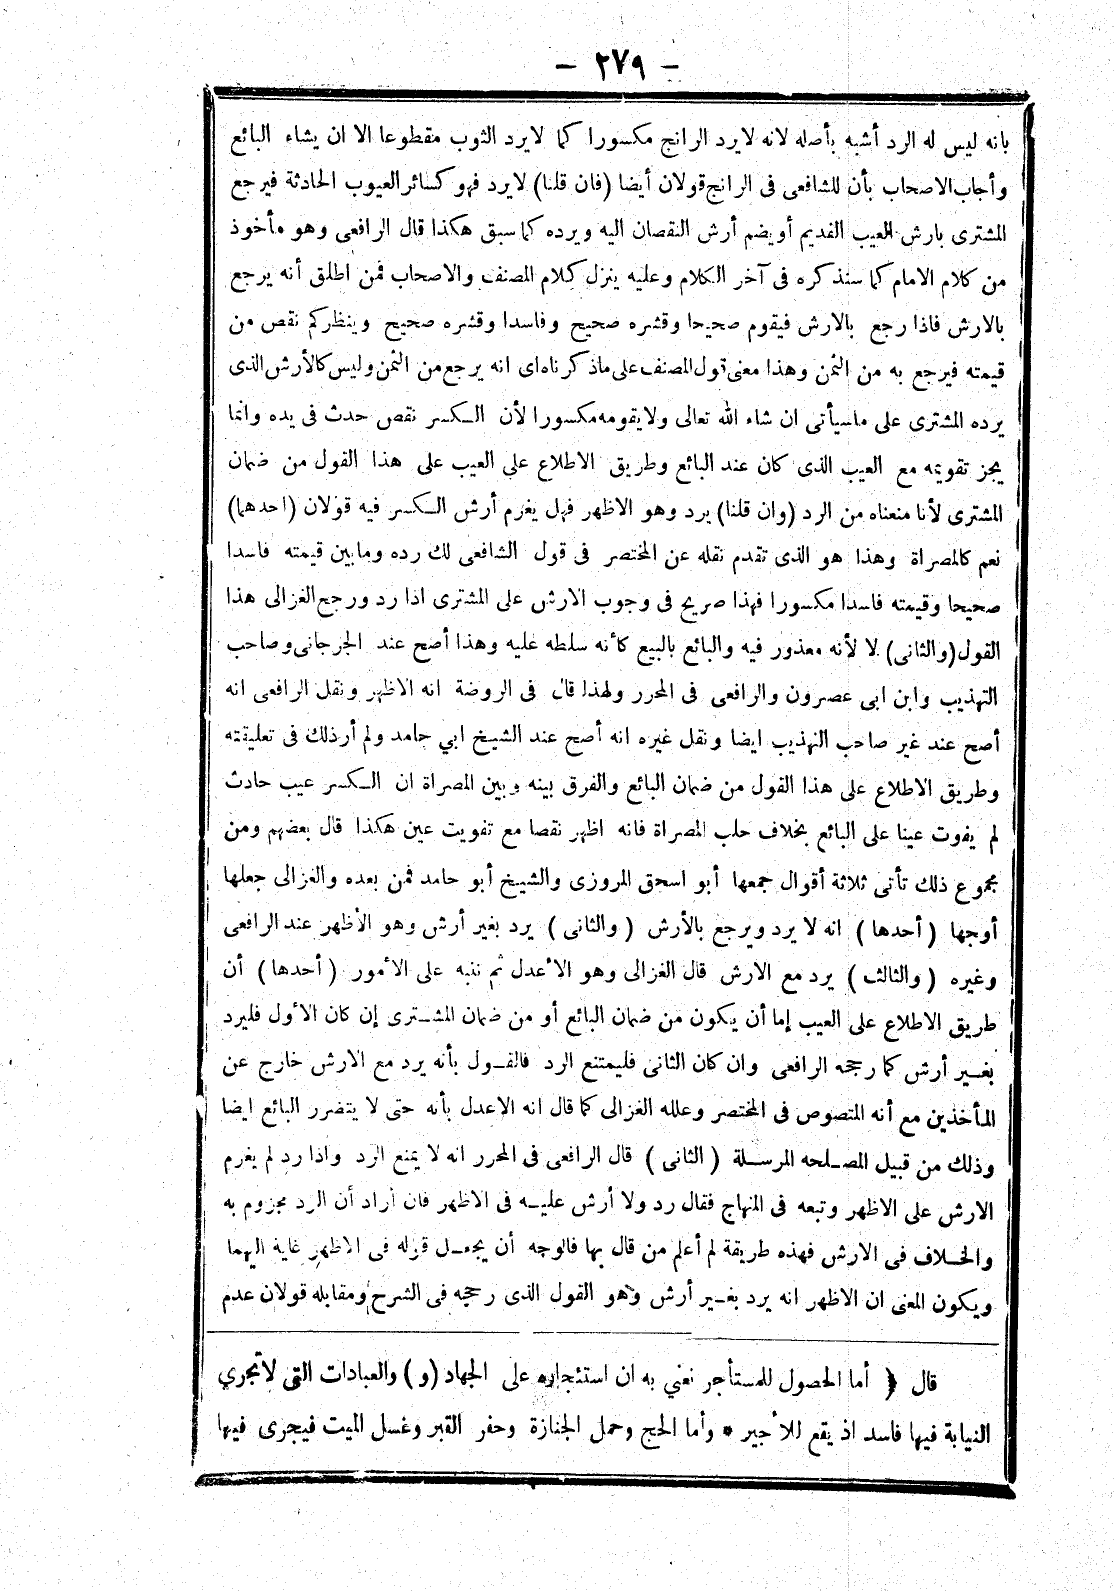 — ٢٧٩ —
بانه ليس له الرد أشبه بأصله لانه لايرد الرانج مكسورا كما لايرد الثوب مقطوعا الا ان يشاء البائع
وأجاب الاصحاب بأن للشافعى فى الرانج قولان أيضا (فان قلنا) لايرد فهو كسائر العيوب الحادثة فيرجع
المشترى بارش العيب القديم أو يضم أرش النقصان اليه ويرده كما سبق هكذا قال الرافعى وهو مأخوذ
من كلام الامام كما سنذكره فى آخر الكلام وعليه ينزل كلام المصنف والاصحاب فمن اطلق أنه يرجع
بالارش فاذا رجع بالارش فيقوم صحيحا وقشره صحيح وفاسدا وقشره صحيح وينظر كم نقص من
قيمته فيرجع به من الثمن وهذا معنى قول المصنف على ماذكرناه اى انه يرجع من الثمن وليس كالأرش الذى
يرده المشترى على ماسيأتى ان شاء الله تعالى ولا يقومه مكسورا لأن الكسر نقص حدث فى يده وانما
يجز تقويمه مع العيب الذى كان عند البائع وطريق الاطلاع على العيب على هذا القول من ضمان
المشترى لأنا منعناه من الرد (وان قلنا) يرد وهو الاظهر فهل يغرم أرش الكسر فيه قولان (احدهما)
نعم كالمصراة وهذا هو الذى تقدم نقله عن المختصر فى قول الشافعى لك رده ومابين قيمته فاسدا
صحيحا وقيمته فاسدا مكسورا فهذا صريح فى وجوب الارش على المشترى اذا رد ورجح الغزالى هذا
القول (والثانى) لا لأنه معذور فيه والبائع بالبيع كأنه سلطه عليه وهذا أصح عند الجرجانى وصاحب
التهذيب وابن ابى عصرون والرافعى فى المحرر ولهذا قال فى الروضة انه الاظهر ونقل الرافعى انه
أصح عند غير صاحب التهذيب ايضا ونقل غيره انه أصح عند الشيخ ابي حامد ولم أر ذلك فى تعليقته
وطريق الاطلاع على هذا القول من ضمان البائع والفرق بينه وبين المصراة ان الكسر عيب حادث
لم يفوت عينا على البائع بخلاف حلب المصراة فانه اظهر نقصا مع تفويت عين هكذا قال بعضهم ومن
مجموع ذلك تأتى ثلاثة أقوال جمعها أبو اسحق المروزى والشيخ أبو حامد فمن بعده والغزالى جعلها
أوجها (أحدها) انه لا يرد ويرجع بالأرش (والثانى) يرد بغير أرش وهو الأظهر عند الرافعى
وغيره (والثالث) يرد مع الارش قال الغزالى وهو الأعدل ثم ننبه على الأمور (أحدها) أن
طريق الاطلاع على العيب إما أن يكون من ضمان البائع أو من ضمان المشترى إن كان الأول فليرد
بغير أرش كما رجحه الرافعى وان كان الثانى فليمتنع الرد فالقول بأنه يرد مع الارش خارج عن
المأخذين مع أنه المنصوص فى المختصر وعلله الغزالى كما قال انه الاعدل بأنه حتى لا يتضرر البائع ايضا
وذلك من قبيل المصلحه المرسلة (الثانى) قال الرافعى فى المحرر انه لا يمنع الرد واذا رد لم يغرم
الارش على الاظهر وتبعه فى المنهاج فقال رد ولا أرش عليه فى الاظهر فان أراد أن الرد مجزوم به
والخلاف فى الارش فهذه طريقة لم أعلم من قال بها فالوجه أن يجعل قوله فى الاظهر غاية اليهما
ويكون المعنى ان الاظهر انه يرد بغير أرش وهو القول الذى رجحه فى الشرح ومقابله قولان عدم
قال ﴿ أما الحصول للمستأجر نعني به ان استئجاره على الجهاد (و) والعبادات التى لاتجري
النيابة فيها فاسد اذ يقع للأجير * وأما الحج وحمل الجنازة وحفر القبر وغسل الميت فيجرى فيها